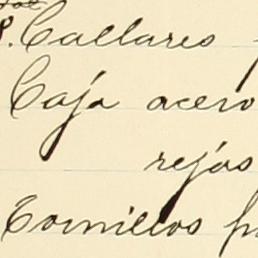 Callares
Caja acero
rejas
Tornillos p